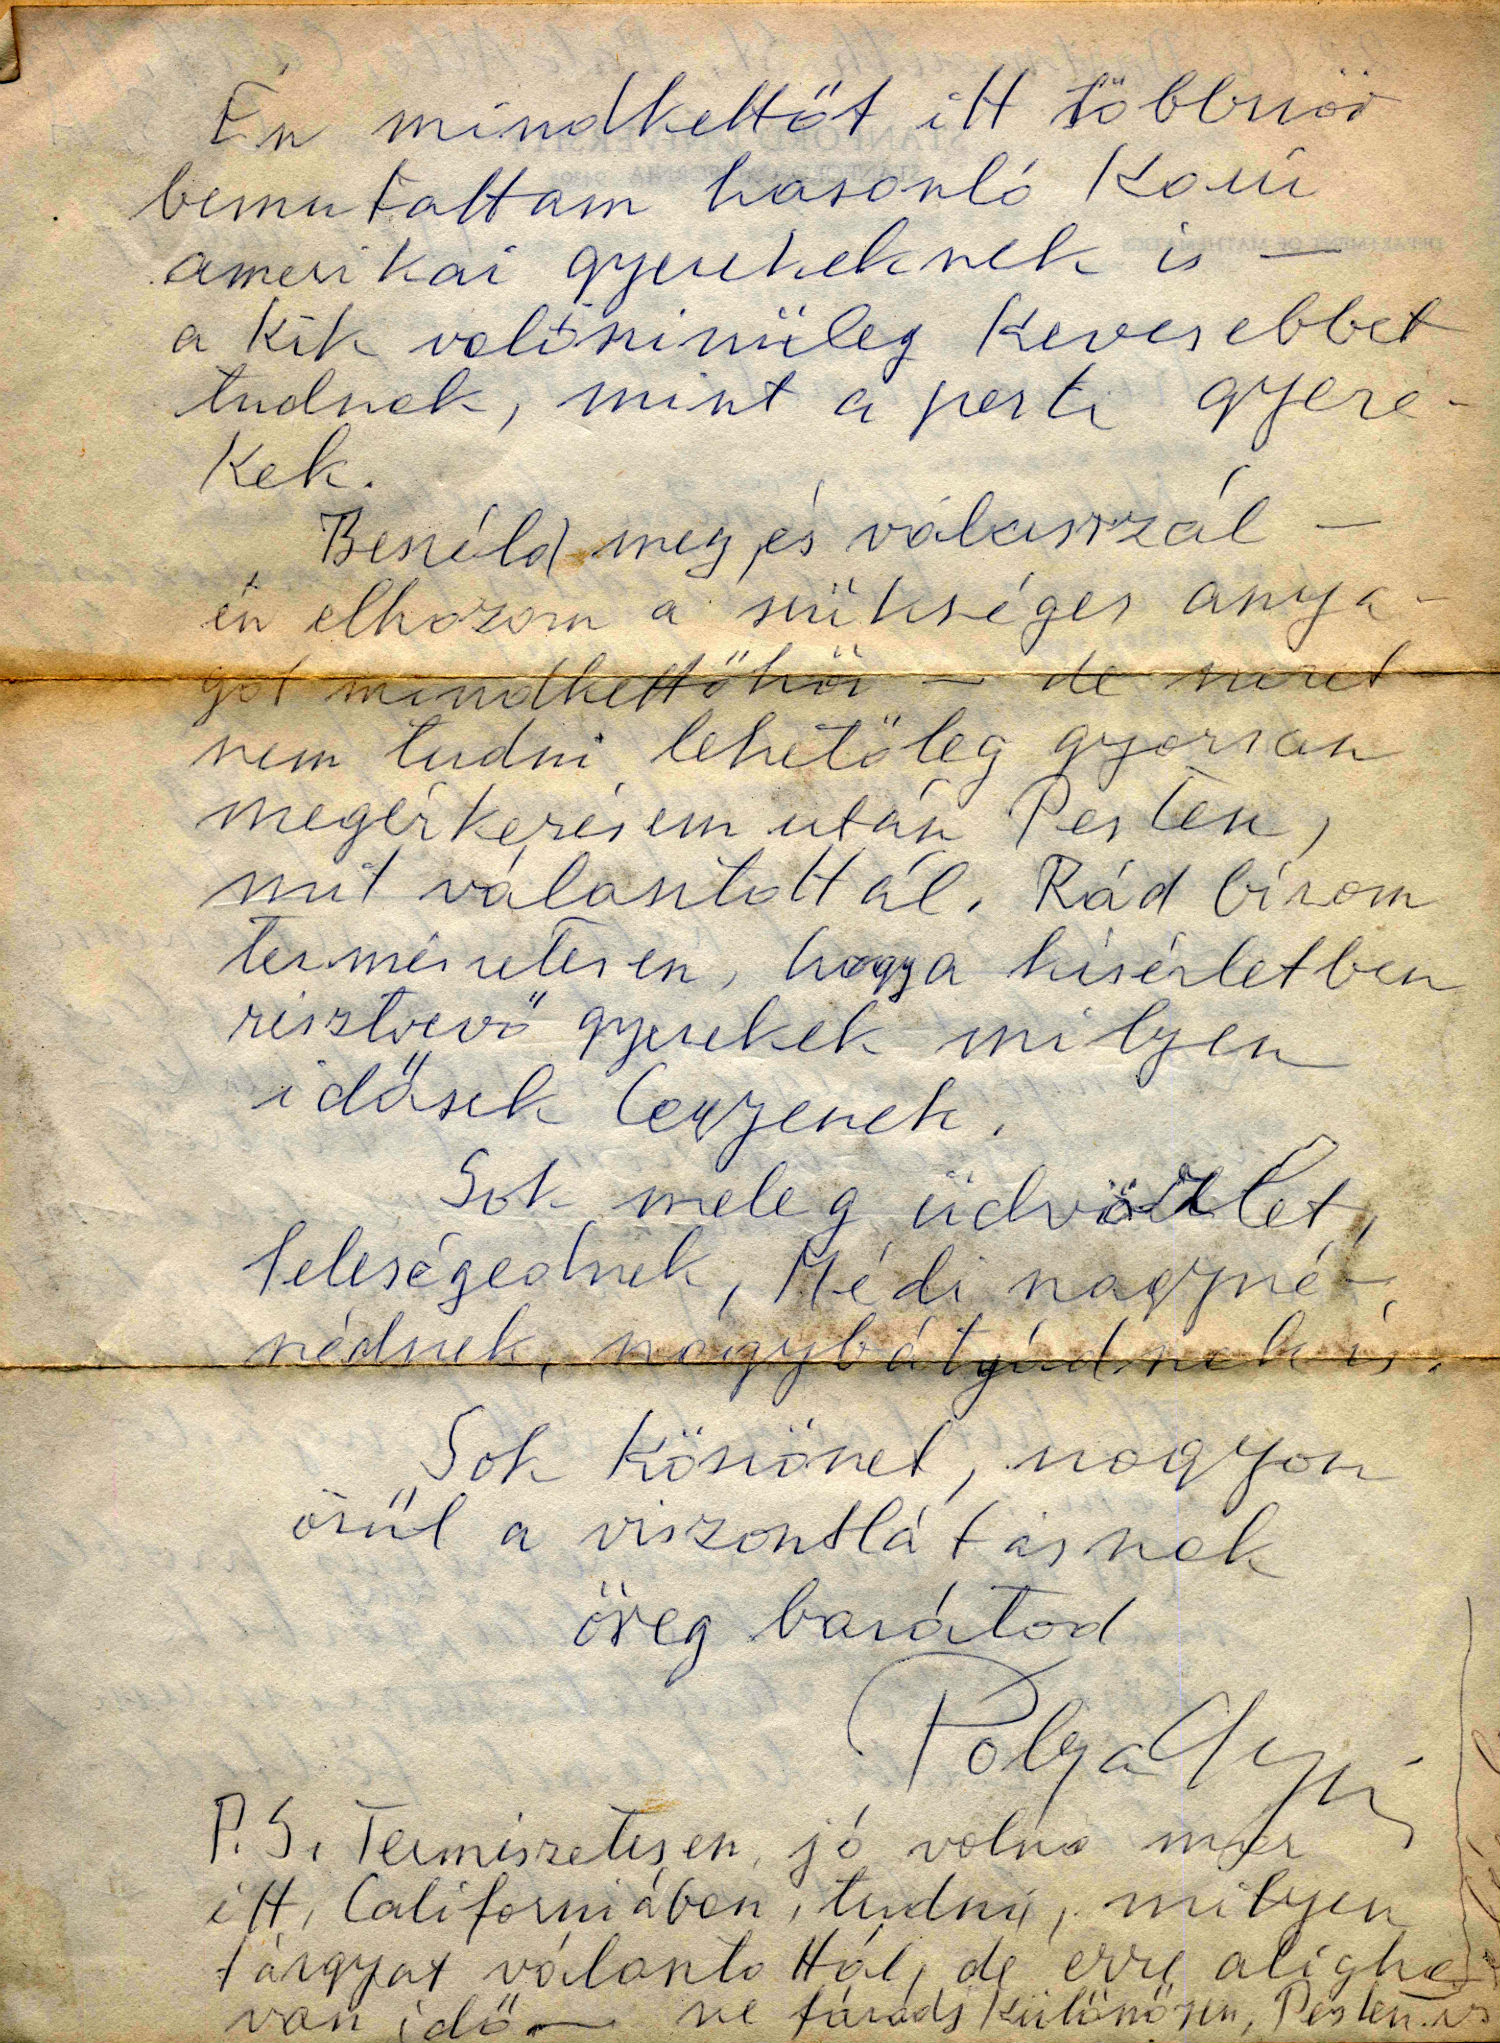 Én mindkettőt itt többször
bemutattam hasonló korú
amerikai gyerekeknek is —
a kik valószinüleg kevesebbet
tudnak, mint a pesti gyere-
kek.
Beszéld meg, és válasszál —
én elhozom a szükséges anya-
got mindkettőhöz — de szeret-
ném tudni lehetőleg gyorsan
megérkezésem után Pesten,
mit választottál. Rád bízom
természetesen, hogy a kisérletben
résztvevő gyerekek milyen
idősek legyenek.
Sok meleg üdvözlet,
feleségednek, Médi nagyné-
nédnek, nagybátyádnak is.
Sok köszönet, nagyon
örül a viszontlátásnak
öreg barátod
Pólya Gyuri
P.S. Természetesen, jó volna már
itt, Californiában, tudni, milyen
tárgyat választottál, de erre aligha
van idő — ne fáradj különösen, Pesten is
STANFORD UNIVERSITY
DEPARTMENT OF MATHEMATICS